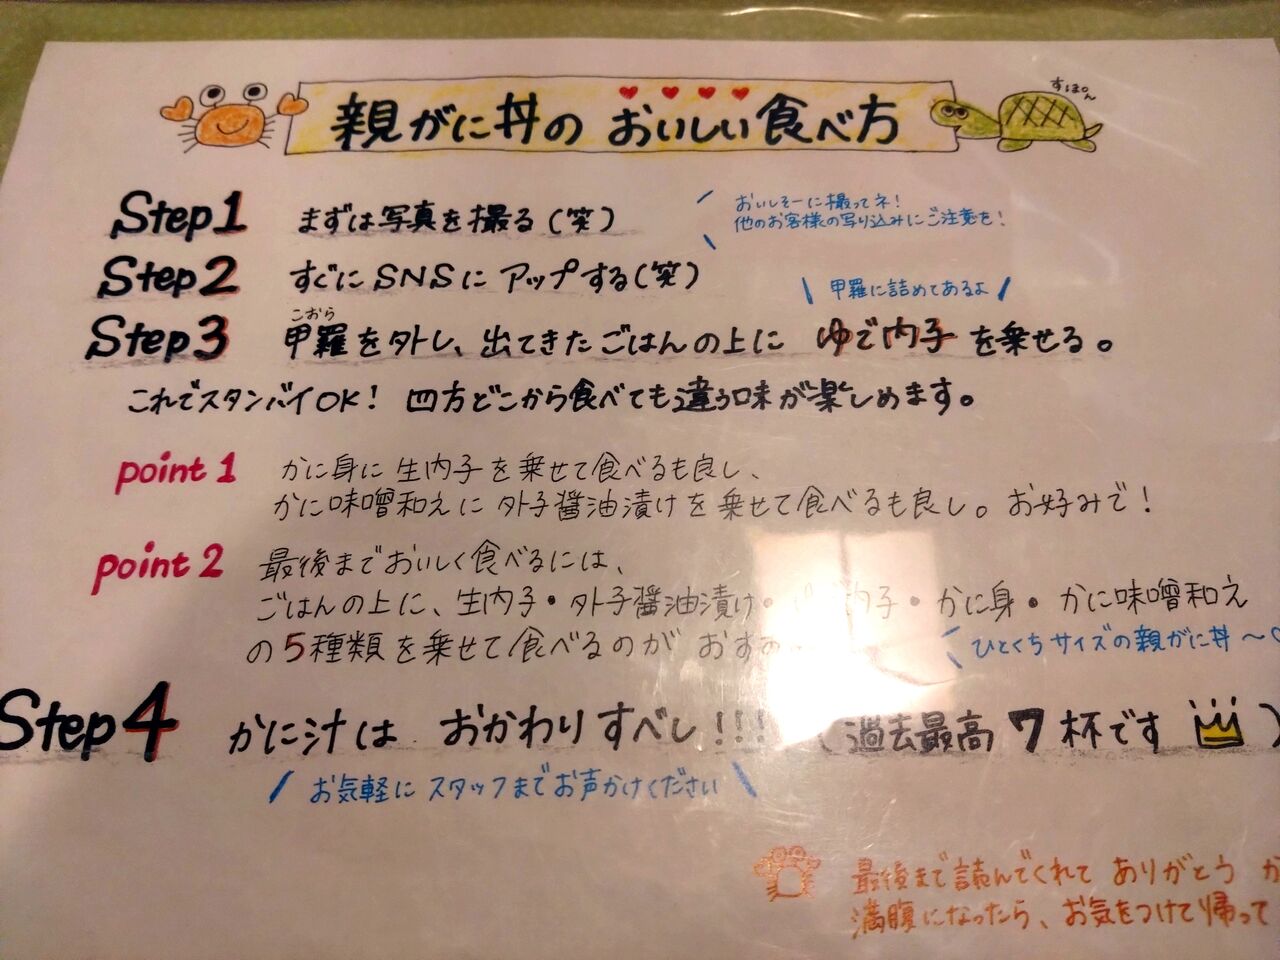 親がに丼の おいしい食べ方
すぽん
Step1 まずは写真を撮る(笑)
おいしそーに撮ってネ!
他のお客様の写り込みにご注意を!
Step2 すぐにSNSに アップする(笑)
甲羅に詰めてあるよ
こおら
Step3 甲羅を外し、出てきたごはんの上に ゆで内子を乗せる。
これでスタンバイOK! 四方どこから食べても違う味が楽しめます。
point1 かに身に生内子を乗せて食べるも良し、
かに味噌和えに外子醤油漬けを乗せて食べるも良し。お好みで!
point2 最後までおいしく食べるには、
ごはんの上に、生内子・外子醤油漬け・ 内子・かに身・かに味噌和え
の5種類を乗せて食べるのが おすす
ひとくちサイズの親がに丼〜♡
Step4 かに汁は おかわりすべし!!! (過去最高 7杯です )
お気軽にスタッフまでお声かけください
最後まで読んでくれて ありがとう か
満腹になったら、お気をつけて帰って